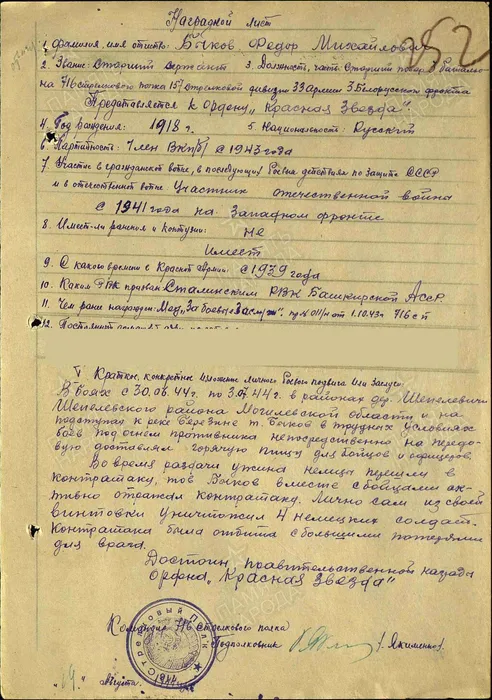 Наградной лист
252
1. Фамилия, имя отчество Быков Федор Михайлович
2. Звание: Старший сержант 3. Должность, часть: Старший повар 2 батальона
на 716 стрелкового полка 157 стрелковой дивизии 33 армии 3 Белорусского фронта
Представляется к ордену „Красная Звезда".
4. Год рождения: 1918 г. 5. Национальность: Русский
6. Партийность: Член ВКП(б) с 1943 года
7. Участие в гражданской войне, в последующих боевых действиях по защите СССР
и в отечественной войне Участник отечественной война
с 1941 года на Западном фронте
8. Имеет-ли ранения и контузии: не
имеет
9. С какого времени в Красной Армии: с 1939 года
10. Каким РВК призван: Сталинским РВК Башкирской АССР.
11. Чем ранее награжден: Мед. „За боевые Заслуги". пр. № 011/н от 1.10.43г 716 сп
12. Постоянный
I Краткое, конкретное изложение личного боевого подвига или заслуг
В боях с 30.06.44г. по 3.07.44г. в районах дер. Шепелевичи
Шепелевского района Могилевской области и на
подступах к реке Березине т. Быков в трудных условиях
боев под огнем противника непосредственно на передо-
вую доставлял горячую пищу для бойцов и офицеров.
Во время раздачи ужина немцы перешли в
контратаку, тов Быков вместе с бойцами ак-
тивно отражал контратаку. Лично сам из своей
винтовки уничтожил 4 немецких солдат.
Контратака была отбита с большими потерями
для врага.
Достоин правительственной награда
Ордена „Красная Звезда"
Командир 716 стрелкового полка
Подполковник /Якименко/
Стрелковый полк
"14" Августа 1944 г.